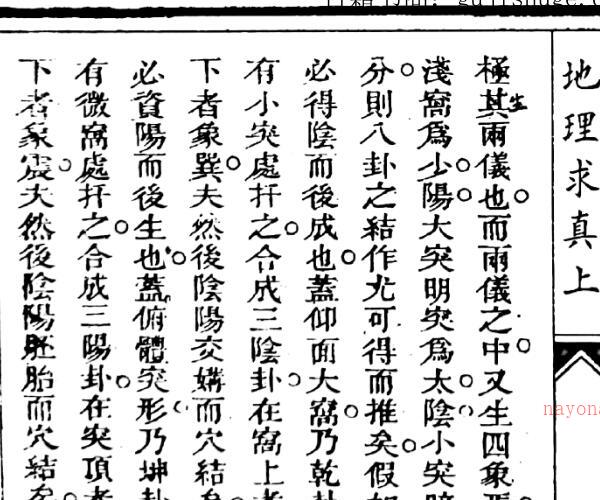 地理求真上
極其生兩儀也而兩儀之中又生四象
淺窩爲少陽大突明突爲太陰小突
分則八卦之結作尤可得而推矣假
必得陰而後成也蓋仰面大窩乃乾卦
有小突處扦之合成三陰卦在窩上者
下者象巽夫然後陰陽交媾而穴結
必資陽而後生也蓋俯體突形乃坤卦
有微窩處扦之合成三陽卦在突頂者
下者象震夫然後陰陽胚胎而穴結
nayona